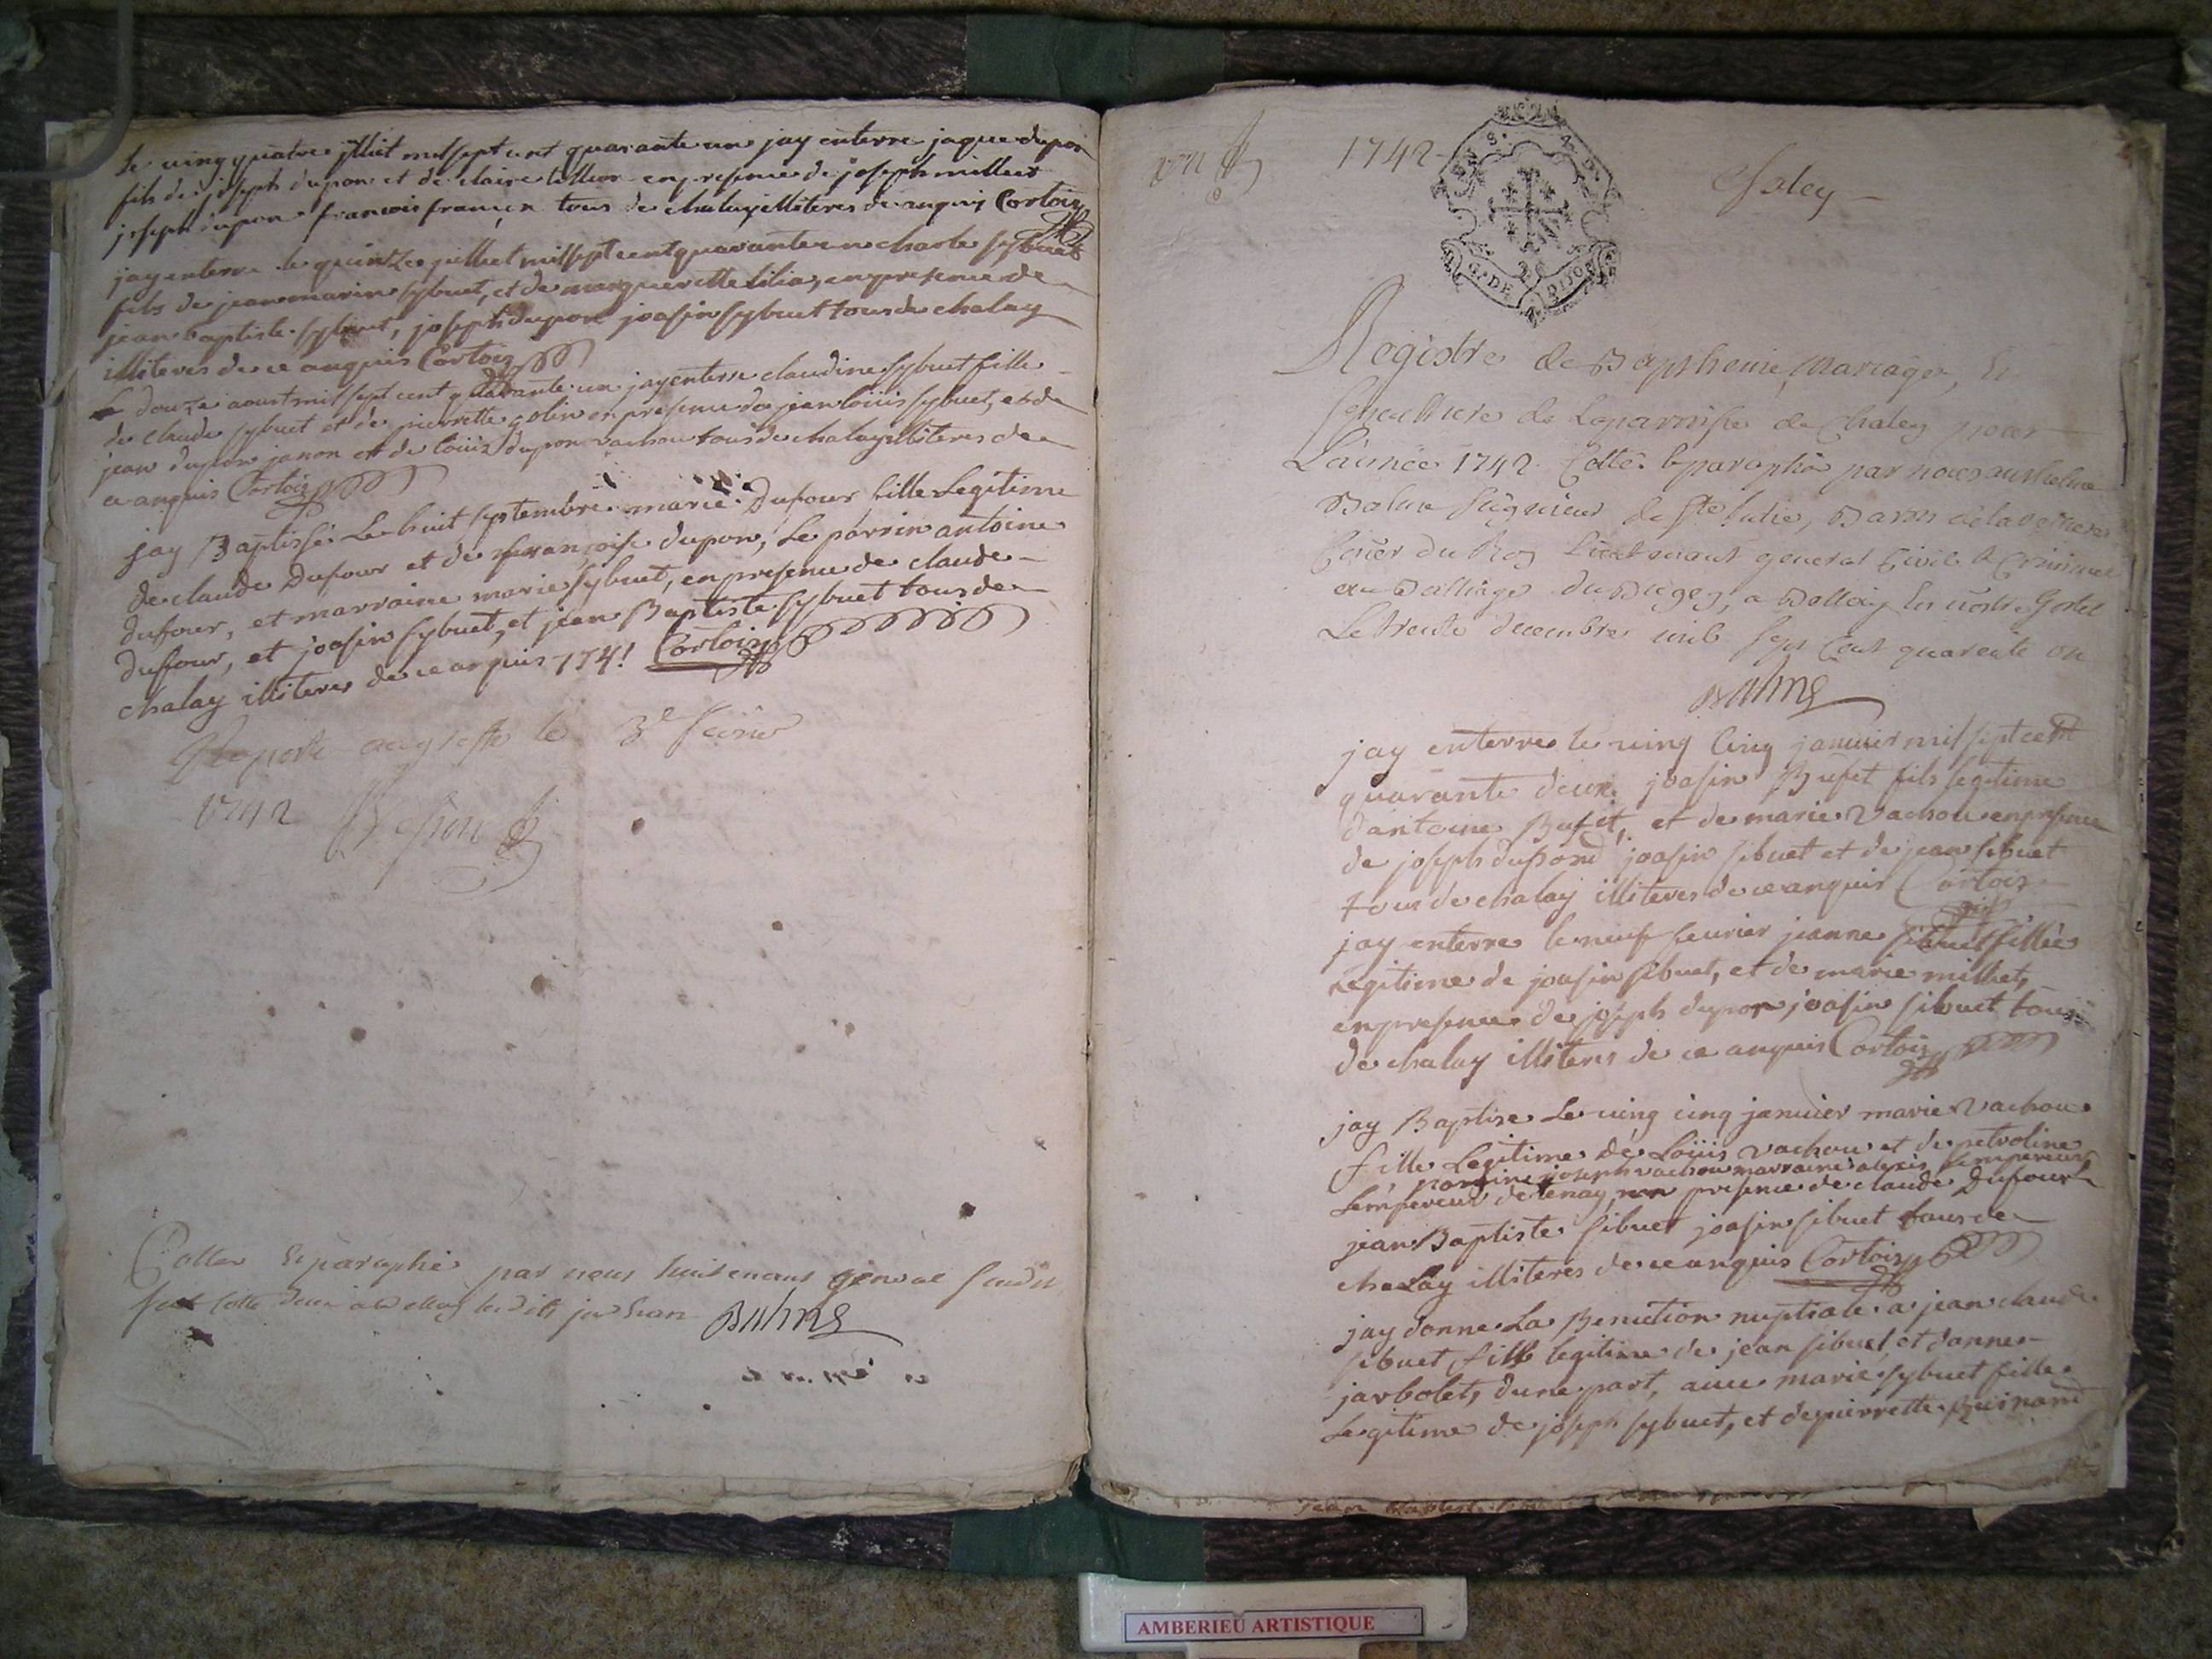 Le ving quatre jlliet mil sept cent quarante un jay enterre jaque dupon
fils de joseph dupon et de claire tellier en presence de joseph milliet
joseph dupon francois françon tous de chalay illiteres de anquis Cortois
jay enterre le quinze julliet mil sept cent quarante un charle sybuet
fils de jean marin sybuet, et de marguerette lilia, en presence de
jean baptiste sybuet, joseph dupon joasin sybuet tous de chalay
illiteres de ce anquis Cortois
Le douze aoust mil sept cent quarante un jay enterre claudine sybuet fille
de claude sybuet et de pierrette golin en presence de jean loüis sybuet, et de
jean dupon janon et de loüis dupon vachou tous de chalay illiteres de
ce anquis Cortois
jay Baptissé Le huit septembre marie Dufour fille Legitime
de claude Dufour et de françoise dupon, Le parrin antoine
dufour, et marraine marie sybuet, en presence de claude
dufour, et joasin sybuet, et jean Baptiste sybuet tous de
chalay illiteres de ce anquis 1741 Cortois
Raporté au greffe le 3e fevrier
1742
Cottée & paraphée par nous lieutenant general susdit
BALME
1742
Chaley
G. DE DIJON
Registre de Baptheme, Mariages, Et
Sepulture de La parroisse de Chaley pour
L'année 1742 Cotté & paraphé par nous anthelme
Balme seigneur de Ste Julie, Baron de
Coner du Roy Lieutenant general Civil & Criminel
au Balliage du Bugey, a Belley En nostre hostel
Le trente decembre mil sept Cent quarente un
BALME
jay enterre le ving cinq januier mil sept cent
quarante deux joasin Bufet fils legitime
d'antoine Bufet, et de marie vachou en presence
de joseph dupond joasin sibuet et de jean sibuet
tous de chalay illiteres de ce anquis Cortois
jay enterre le neuf feurier jeanne sibuet fille
Legitime de joasin sibuet, et de marie milliet,
en presence de joseph dupon joasin sibuet tous
de chalay illiteres de ce anquis Cortois
jay Baptise Le ving cinq januier marie vachou
fille Legitime de Loüis vachou et de petroline
parrine joseph vachou marraine alexis Lempereur
Lempereur de tenay, en presence de claude Dufour
jean Baptiste sibuet joasin sibuet tous de
chalay illiteres de ce anquis Cortois
jay donne La Beniction nuptiale a jean claude
sibuet fills legitime de jean sibuet, et danne
jarbolet, dune part, auec marie sybuet fille
Legitime de joseph sybuet, et de pierrette Quinand
AMBERIEU ARTISTIQUE